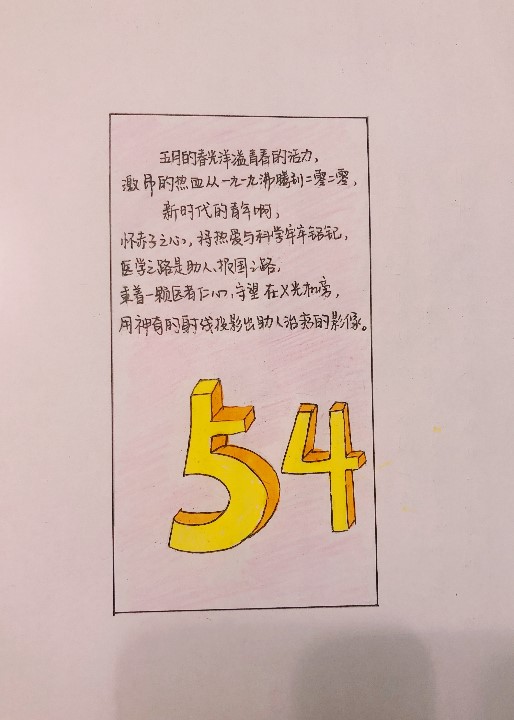 五月的春光洋溢青春的活力,
激昂的热血从一九一九沸腾到二零二零,
新时代的青年啊,
怀赤子之心,将热爱与科学牢牢铭记,
医学之路是助人、报国之路,
秉着一颗医者仁心,守望在X光机旁,
用神奇的射线投影出助人治病的影像。
54